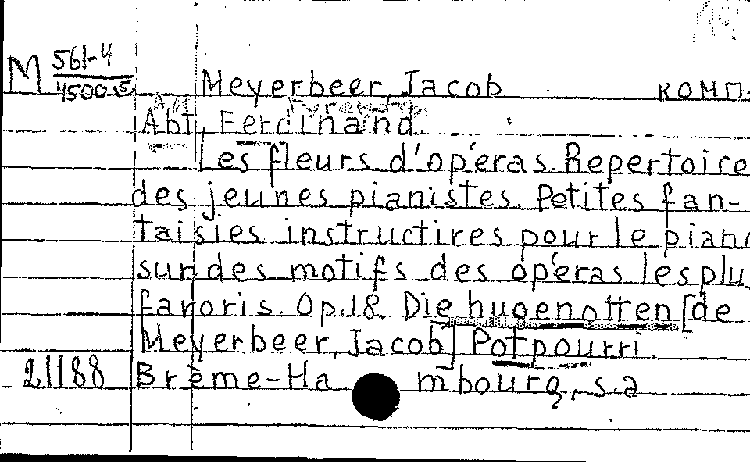 M 561-4
4500-5
Meyerbeer, Jacob комп.
Abt, Ferdinand.
Les fleurs d'opéras. Repertoire
des jeunes pianistes. Petites fan-
taisies instructires pour le piano
sur des motifs des opéras les plu
favoris. Op.18. Die hugenotten [de
Meyerbeer, Jacob] Potpourri.
21188 Brème-Hambourg, s.a